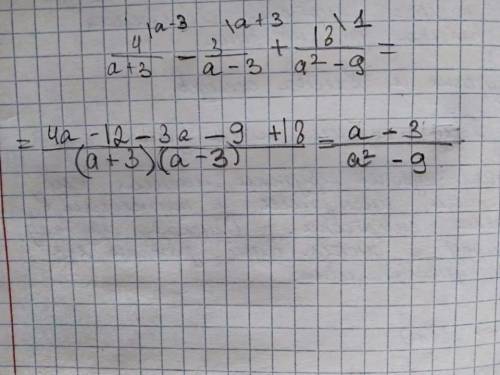 4\a-3 / a+3 - 3\a+3 / a-3 + 18\1 / a² - 9 =
= 4a - 12 - 3a - 9 + 18 / (a+3)(a-3) = a - 3 / a² - 9